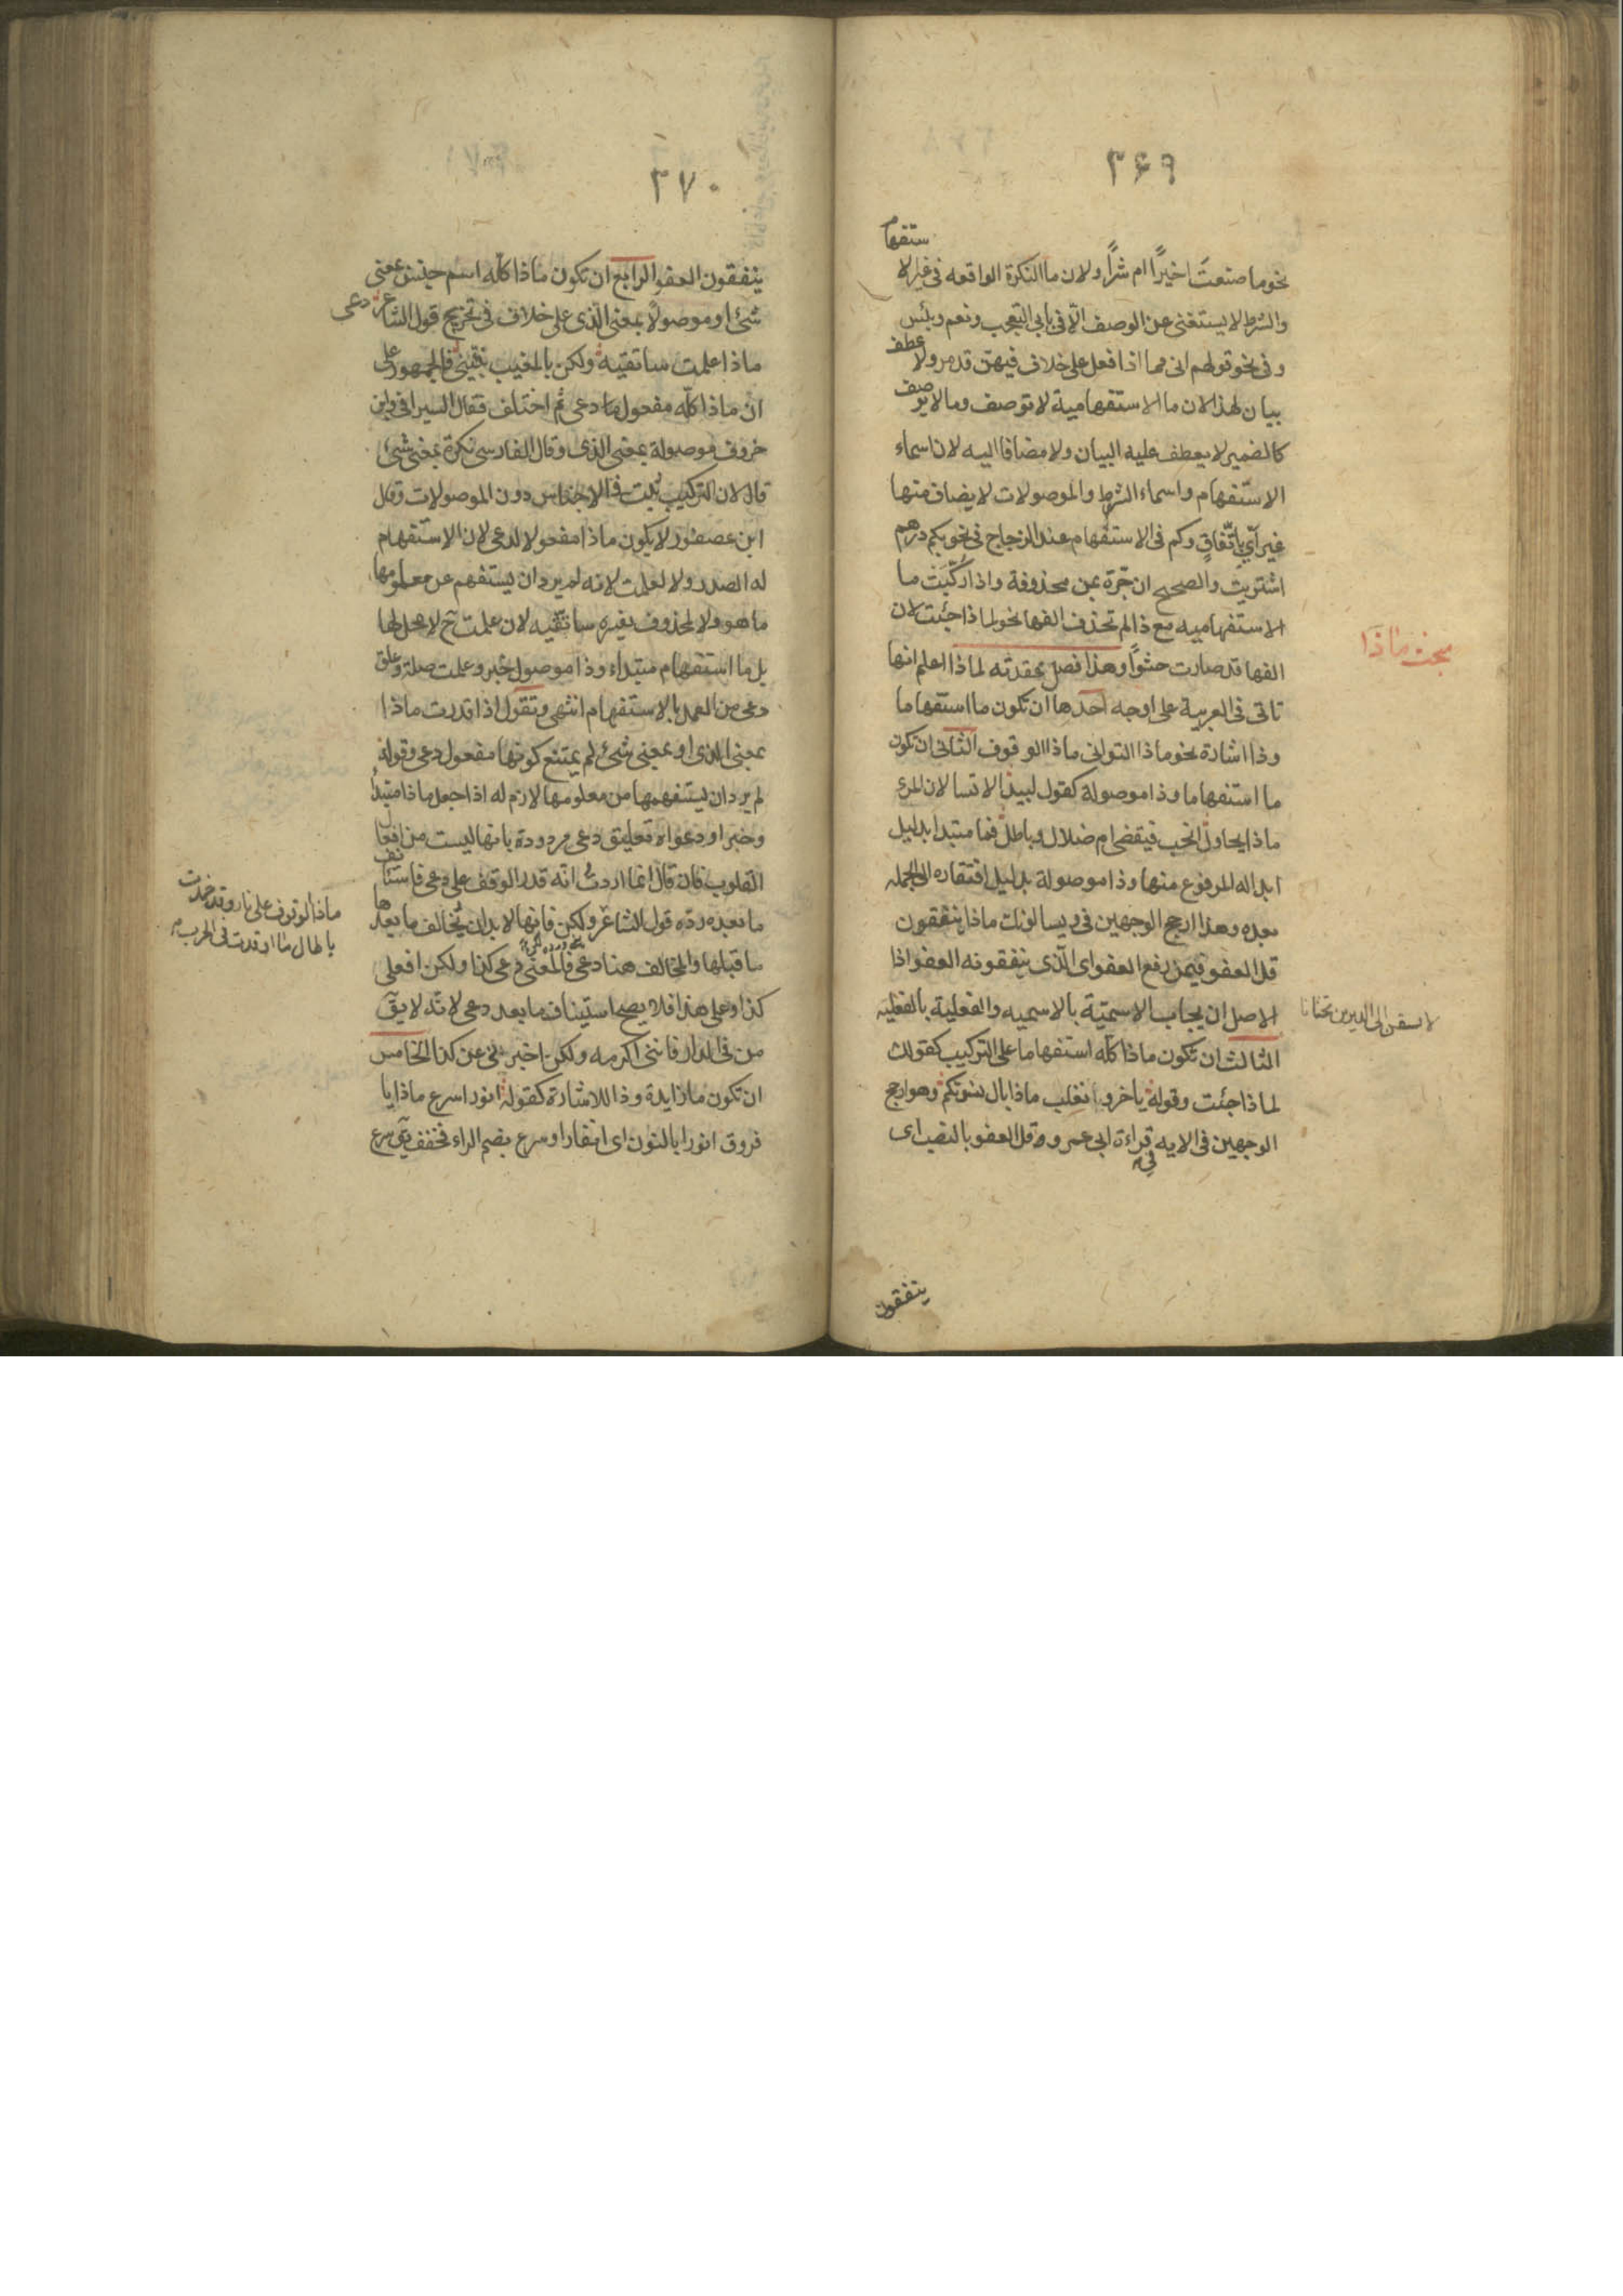 ٣۶٩
نحو ما صنعتَ اخيرًا ام شرًا ولان ما النكرة الواقعه فى غير الا
ستفهام
والشرط لا يستغنى عن الوصف الّا فى بابى التعجب ونعم وبئس
وفى نحو قولهم انى مما اذا فعل على خلاف فيهن قد مر ولا عطف
بيان لهذا لان ما الاستفهامية لا توصف وما لا يوصف
كالضمير لا يعطف عليه البيان ولا مضافا اليه لان اسماء
الاستفهام واسماء الشرط والموصولات لا يضاف منها
غير اَىٍ باتّفاقٍ وكم فى الاستفهام عند الزجاج فى نحو بكم درهم
اشتريتَ والصحيح ان جّره بمن محذوفة واذا رُكّبَت ما
الاستفهاميه مع ذا لم تحذف الفها نحو لماذا جئت لان
الفها قد صارت حشوًا وهذا فصل عقدته لماذا اعلم انها
بحث ماذا
تاتى فى العربية على اوجه احدها ان تكون ما استفهاما
وذا اشارة نحو ماذا التوانى ماذا الوقوف الثانى ان تكون
ما استفهاما وذا موصولة كقول لبيد الا تسالان المرء
ماذا يحاول انحب فيقضى ام ضلال وباطل فما مبتدا بدليل
ابداله المرفوع منها وذا موصولة بدليل افتقاره الى الجمله
بعده وهذا ارجح الوجهين فى ويسالونك ماذا ينفقون
قل العفو فيمن رفع العفو اى الّذى ينفقونه العفو اذا
الاصل ان يجاب الاسميّة بالاسميه والفعلية بالفعليه
الثالث ان تكون ماذا كلّه استفهاما على التركيب كقولك
لماذا جئت وقوله يا خزر تغلب ماذا بال نسوتكم وهو ارجح
الوجهين فى الايه فى قراءة ابى عمرو قل العفو بالنصب اى
ينفقون
٣٧٠
ينفقون العفو الرابع ان تكون ماذا كلّه اسم جنس بمعنى
شئ او موصولًا بمعنى الّذى على خلاف فى تخريج قول الشاعر دعى
ماذا علمت ساتقيه ولكن بالمغيب نبّئينى فالجمهور على
ان ماذا كلّه مفعول دعى ثم اختلف فقال السيرافى وابن
خروف موصولة بمعنى الذى وقال الفارسى نكرة بمعنى شئ
قال لان التركيب ثبت فى الاجناس دون الموصولات وقال
ابن عصفور لا يكون ماذا مفعولا لدعى لان الاستفهام
له الصدر ولا لعلمت لانه لم يرد ان يستفهم عن معلومها
ما هو ولا لمحذوف يفسره ساتّقيه لان علمت ح لا محل لها
بل ما استفهام مبتداء وذا موصول خبر وعلمت صلة وعلق
دعى من العمل بالاستفهام انتهى وتقول اذا قدرت ماذا
بمعنى الذى او بمعنى شئ لم يمتنع كونها مفعول دعى وقوله
لم يرد ان يستفهمها من معلومها لازم له اذا جعل ماذا مبتدأ
وخبرا ودعواه تعليق دعى مردودة بانها ليست من افعال
القلوب فان قال انما اردتُ انه قدر الوقف على دعى فاستأنف
ماذا لوقوف على نار وقد خمدت
يا طال ما اوقدت فى الحرب
ما بعده ردّه قول الشاعر ولكن فانها لا بد ان يخالف ما بعدها
ما قبلها والمخالف هنا دعى فالمعنى دعى كذا ولكن افعلى
كذا وعلى هذا فلا يصح استيناف ما بعد دعى لانّه لا يق
من فى الدار فاننى اكرمه ولكن اخبرنى عن كذا الخامس
ان تكون ما زايدة وذا للاشارة كقوله انورا سرع ماذا يا
فروق انورا بالنون اى انفارا وسرع بضم الراء فخفف يق سرع